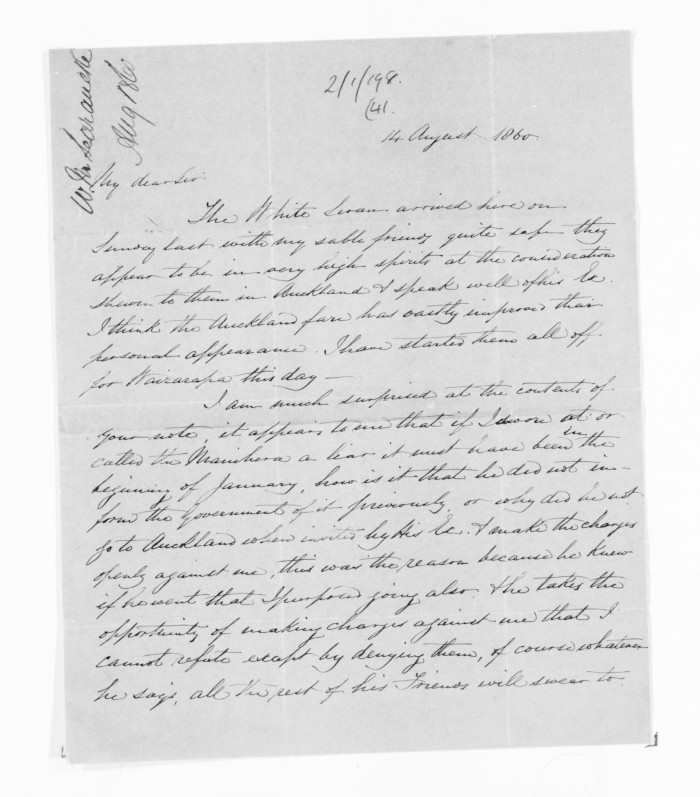 W. N. Searancke
Aug 1860
2/1/198.
(41.
14 August 1860
My dear Sir
The White Swan arrived here on
Sunday last with my sable friends quite safe they
appear to be in very high spirits at the consideration
shewn to them in Auckland & speak well of his Ex.
I think the Auckland fare has vastly improved their
personal appearance. I have started them all off
for Wairarapa this day —
I am much surprised at the contents of
your note, it appears to me that if I swore at or
called the Manihera a liar it must have been in the
beginning of January, how is it that he did not in-
form the Government of it previously, or why did he not
go to Auckland when invited by His Ex. & make the charges
openly against me, this was the reason because he knew
if he went that I purposed going also. & he takes the
opportunity of making charges against me that I
cannot refute except by denying them, of course whatever
he says, all the rest of his Friends will swear to.